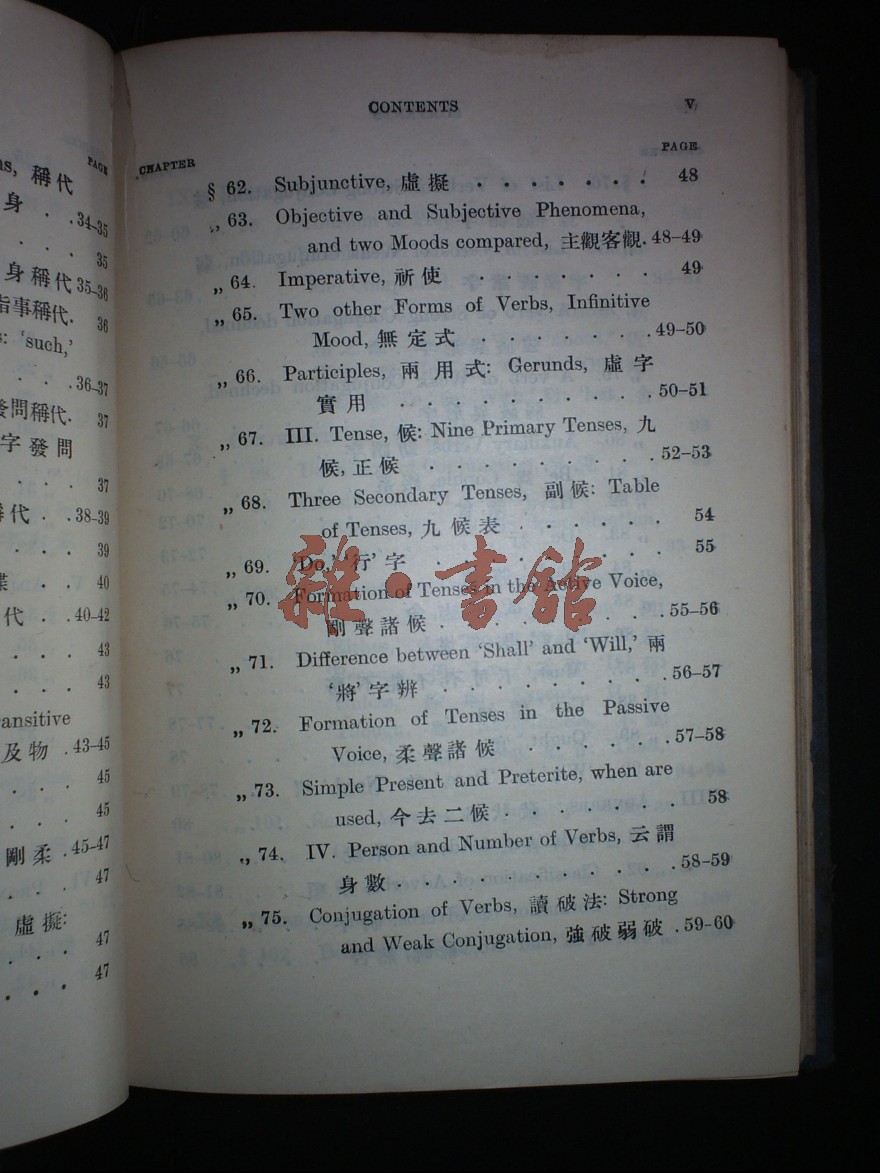 PAGE
稱代
身 . . 34–35
. . . 35
身稱代 35–36
指事稱代. 36
'such,'
. . . . 36–37
發問稱代. 37
字發問
. . . . 37
稱代 . . 38–39
. . . . 39
. . 40
代 . . 40–42
. . . . 43
. . . . 43
及物 . 43–45
. . . . 45
. . . . 45
剛柔 . 45–47
. . . . 47
虛擬:
. . . . 47
. . . . 47
CONTENTS V
CHAPTER PAGE
§ 62. Subjunctive, 虛擬 . . . . . . . 48
„ 63. Objective and Subjective Phenomena,
and two Moods compared, 主觀客觀. 48–49
„ 64. Imperative, 祈使 . . . . . . . 49
„ 65. Two other Forms of Verbs, Infinitive
Mood, 無定式 . . . . . . . 49–50
„ 66. Participles, 兩用式: Gerunds, 虛字
實用 . . . . . . . . . . 50–51
„ 67. III. Tense, 候: Nine Primary Tenses, 九
候, 正候 . . . . . . . . . 52–53
„ 68. Three Secondary Tenses, 副候: Table
of Tenses, 九候表 . . . . . . 54
„ 69. 'Do,' '行' 字 . . . . . . . . 55
„ 70. Formation of Tenses in the Active Voice,
剛聲諸候 . . . . . . . . 55–56
„ 71. Difference between 'Shall' and 'Will,' 兩
'將' 字辨 . . . . . . . . . 56–57
„ 72. Formation of Tenses in the Passive
Voice, 柔聲諸候 . . . . . . 57–58
„ 73. Simple Present and Preterite, when are
used, 今去二候 . . . . . . . 58
„ 74. IV. Person and Number of Verbs, 云謂
身數 . . . . . . . . . . 58–59
„ 75. Conjugation of Verbs, 讀破法: Strong
and Weak Conjugation, 強破弱破 . 59–60
雜·書館